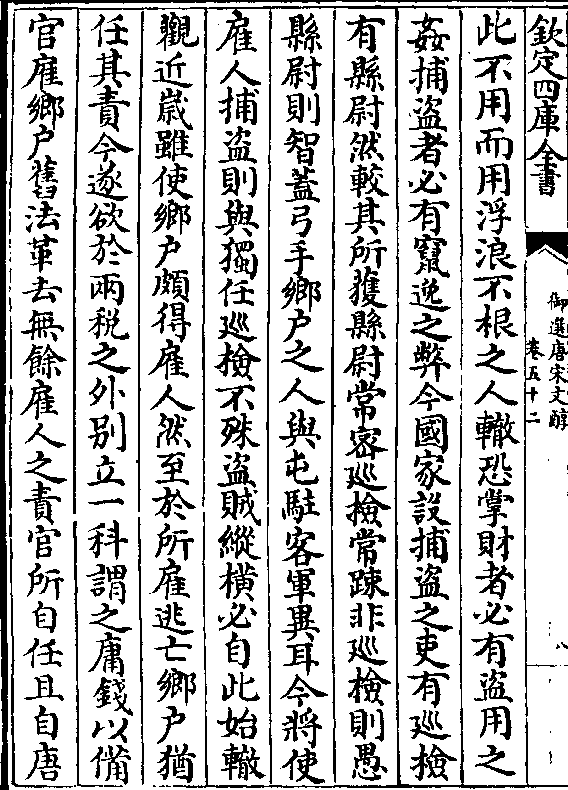 欽定四庫全書
御選唐宋文醇
卷五十二
八
此不用而用浮浪不根之人轍恐掌財者必有盜用之
姦捕盜者必有竄逸之弊今國家設捕盜之吏有巡檢
有縣尉然較其所獲縣尉常密巡檢常踈非巡檢則愚
縣尉則智蓋弓手鄉户之人與屯駐客軍異耳今將使
雇人捕盜則與獨任巡檢不殊盜賊縱橫必自此始轍
觀近嵗雖使鄉户頗得雇人然至於所雇逃亡鄉户猶
任其責今遂欲於兩税之外别立一科謂之庸錢以備
官雇鄉户舊法革去無餘雇人之責官所自任且自唐